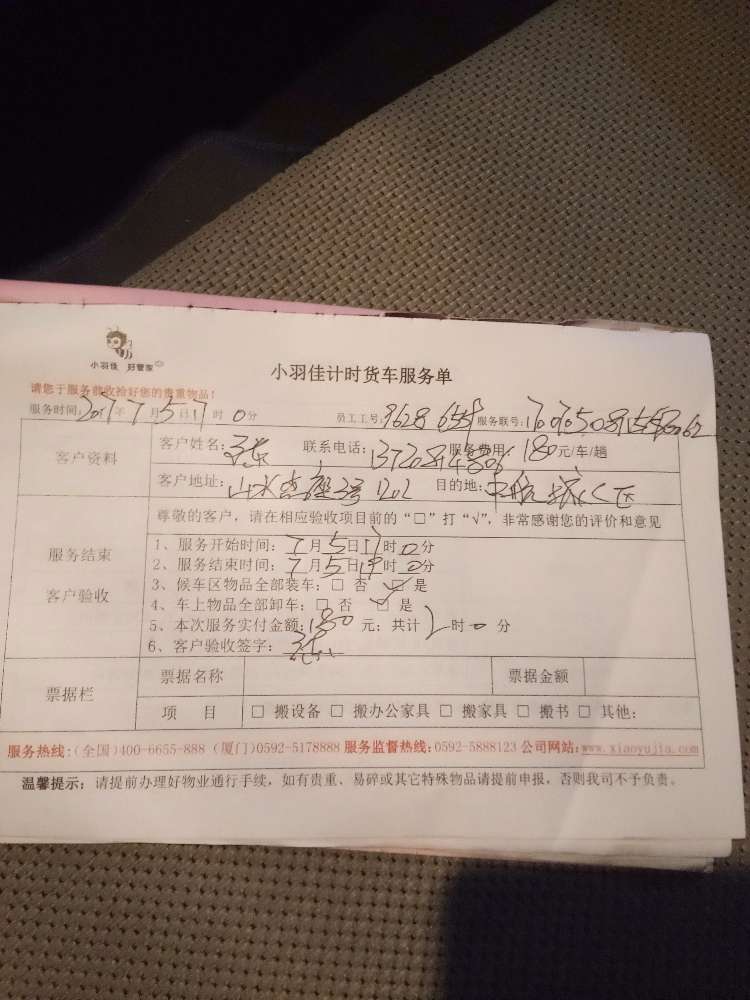 小羽佳 好管家
小羽佳计时货车服务单
请您于服务前收拾好您的贵重物品！
服务时间：2017年7月5日17时0分 员工工号：9628 服务联号：
客户资料 客户姓名： 联系电话： 服务费用：180元/车/趟
客户地址：山水 3号1202 目的地：中航城C区
尊敬的客户，请在相应验收项目前的“□”打“√”，非常感谢您的评价和意见
服务结束 客户验收
1、服务开始时间：7月5日17时0分
2、服务结束时间：7月5日19时0分
3、候车区物品全部装车：□ 否 ☑ 是
4、车上物品全部卸车：□ 否 ☑ 是
5、本次服务实付金额：180元；共计2时0分
6、客户验收签字：
票据栏 票据名称 票据金额
项 目 □ 搬设备 □ 搬办公家具 □ 搬家具 □ 搬书 □ 其他：
服务热线：(全国)400-6655-888 (厦门)0592-5178888 服务监督热线：0592-5888123 公司网站：www.xiaoyujia.com
温馨提示：请提前办理好物业通行手续，如有贵重、易碎或其它特殊物品请提前申报，否则我司不予负责。